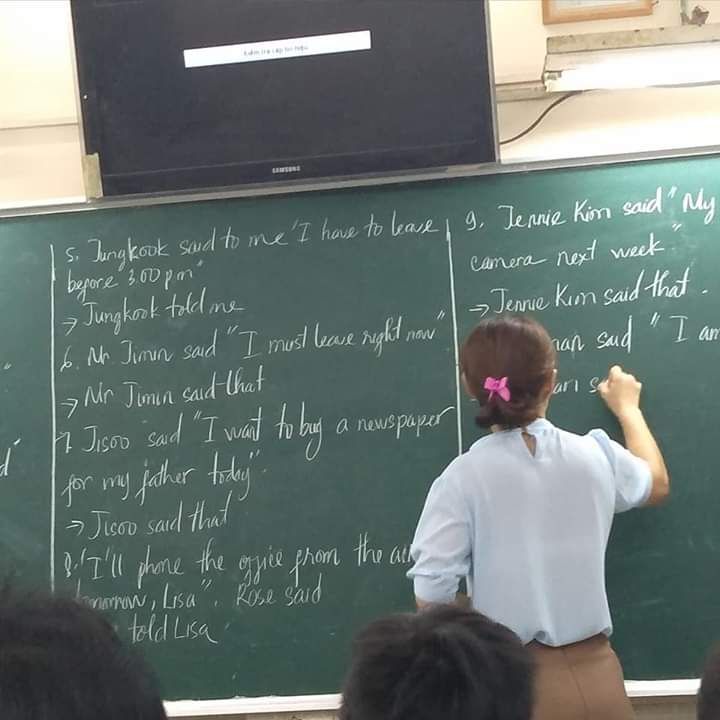 Kiểm tra cáp tín hiệu
SAMSUNG
5. Jungkook said to me "I have to leave
before 3.00 p.m"
→ Jungkook told me
6. Mr. Jimin said "I must leave right now"
→ Mr Jimin said that
7. Jisoo said "I want to buy a newspaper
for my father today".
→ Jisoo said that
8. "I'll phone the office from the
tomorrow, Lisa". Rose said
told Lisa
9. Jennie Kim said "My
camera next week"
→ Jennie Kim said that.
said "I am